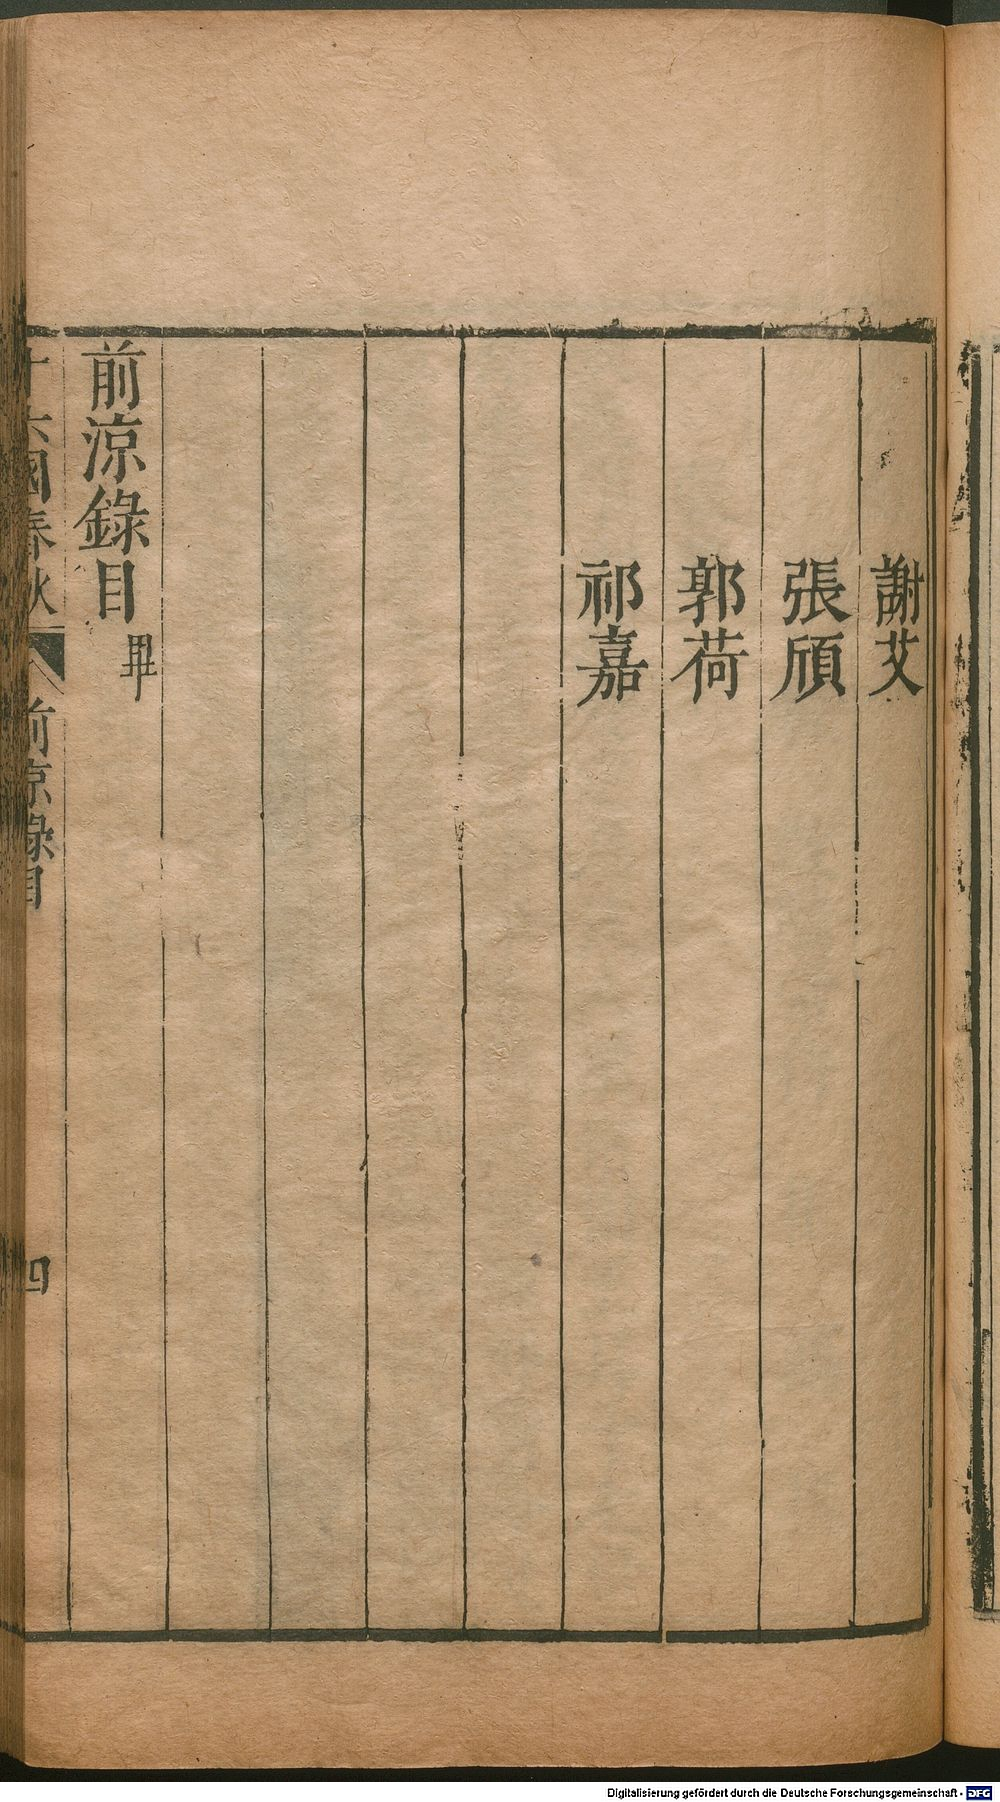 謝艾
張頎
郭荷
祁嘉
前涼錄目畢
十六國春秋 前涼錄目 四
Digitalisierung gefördert durch die Deutsche Forschungsgemeinschaft - DFG